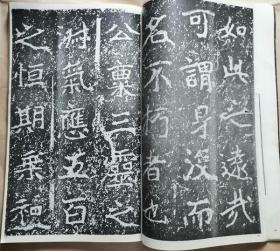 如此之遠哉
可謂身沒而
名不朽者也
公稟三靈之
淑氣應五百
之恒期乘和